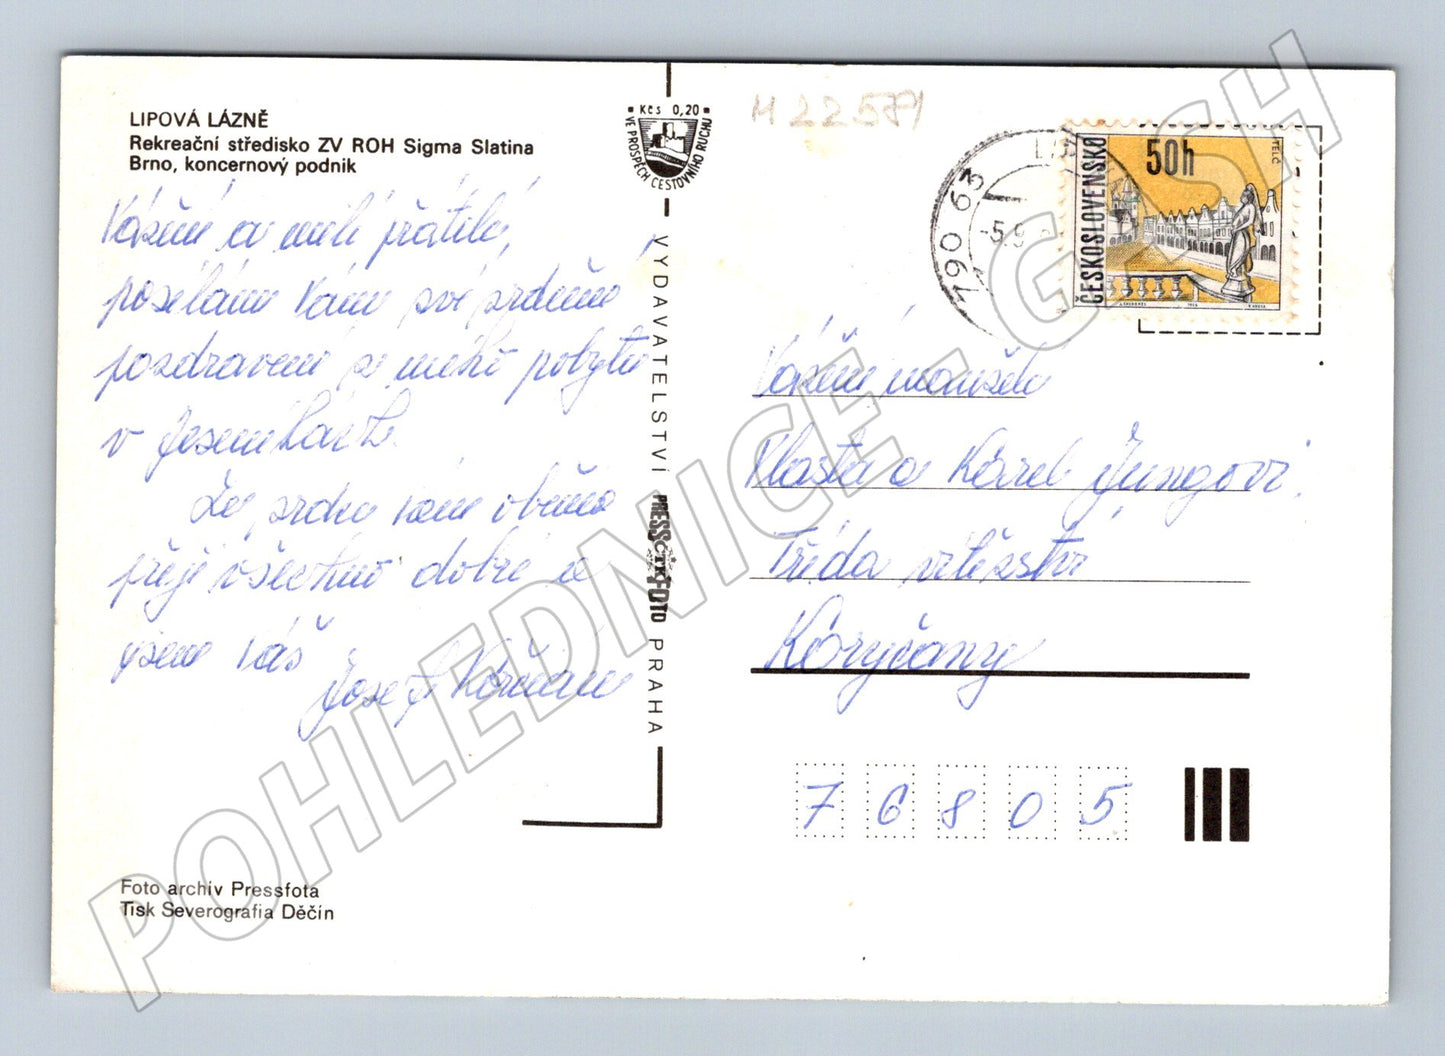 LIPOVÁ LÁZNĚ
Rekreační středisko ZV ROH Sigma Slatina
Brno, koncernový podnik
Vážení a milí přátelé,
posílám Vám své srdečné
pozdravení z mého pobytu
v Jeseníkách.
Ze srdce Vám oběma
přeji všechno dobré a
jsem Váš
Josef
Foto archív Pressfota
Tisk Severografia Děčín
Kčs 0,20
VE PROSPĚCH CESTOVNÍHO RUCHU
VYDAVATELSTVÍ PRESSFOTO PRAHA
ČTK
M 22571
790 63
-5.9.
ČESKOSLOVENSKO
50h
TELČ
Vážení manželé
Vlasta a Karel Jungovi
Třída vítězství
Koryčany
76805
POHLEDNICE - G.SH